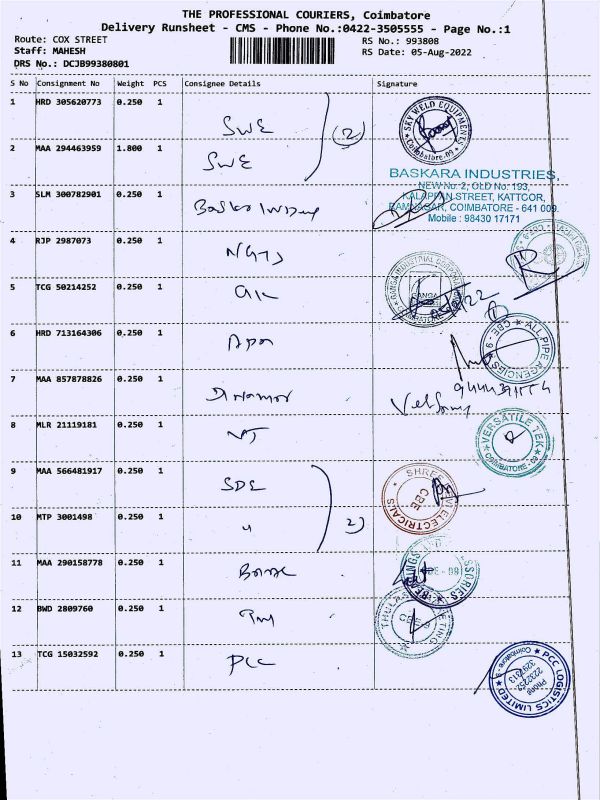 THE PROFESSIONAL COURIERS, Coimbatore
Delivery Runsheet - CMS - Phone No.:0422-3505555 - Page No.:1
Route: COX STREET
RS No.: 993808
Staff: MAHESH
RS Date: 05-Aug-2022
DRS No.: DCJB99380801
S No Consignment No Weight PCS Consignee Details Signature
1 HRD 305620773 0.250 1
SWE (2)
SKY WELD EQUIPMENTS
Coimbatore.09
2 MAA 294463959 1.800 1
SWE
BASKARA INDUSTRIES,
NEW No: 2, OLD No: 193,
3 SLM 300782901 0.250 1
KALAPPAN STREET, KATTOOR,
RAMNAGAR, COIMBATORE - 641 009.
Mobile : 98430 17171
4 RJP 2987073 0.250 1
5 TCG 50214252 0.250 1
GANGA INDUSTRIAL CORPORATION
GANGA
6 HRD 713164306 0.250 1
ALL PIPE AGENCIES CBE - 9
7 MAA 857878826 0.250 1
8 MLR 21119181 0.250 1
VT
VERSATILE TEK
COIMBATORE - 09
9 MAA 566481917 0.250 1
SDE
ELECTRICALS
CBE
10 MTP 3001498 0.250 1
"
2)
11 MAA 290158778 0.250 1
BEARINGS
12 BWD 2809760 0.250 1
13 TCG 15032592 0.250 1
PCC
PCC LOGISTICS LIMITED
Phone